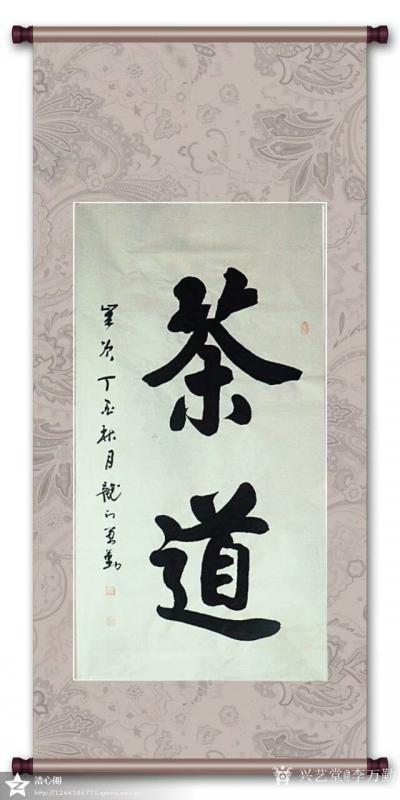 茶道
歲次丁酉秋月龍门萬勤
兴艺堂@李万勤
浩心阁
http://1244386771.qzone.qq.com/